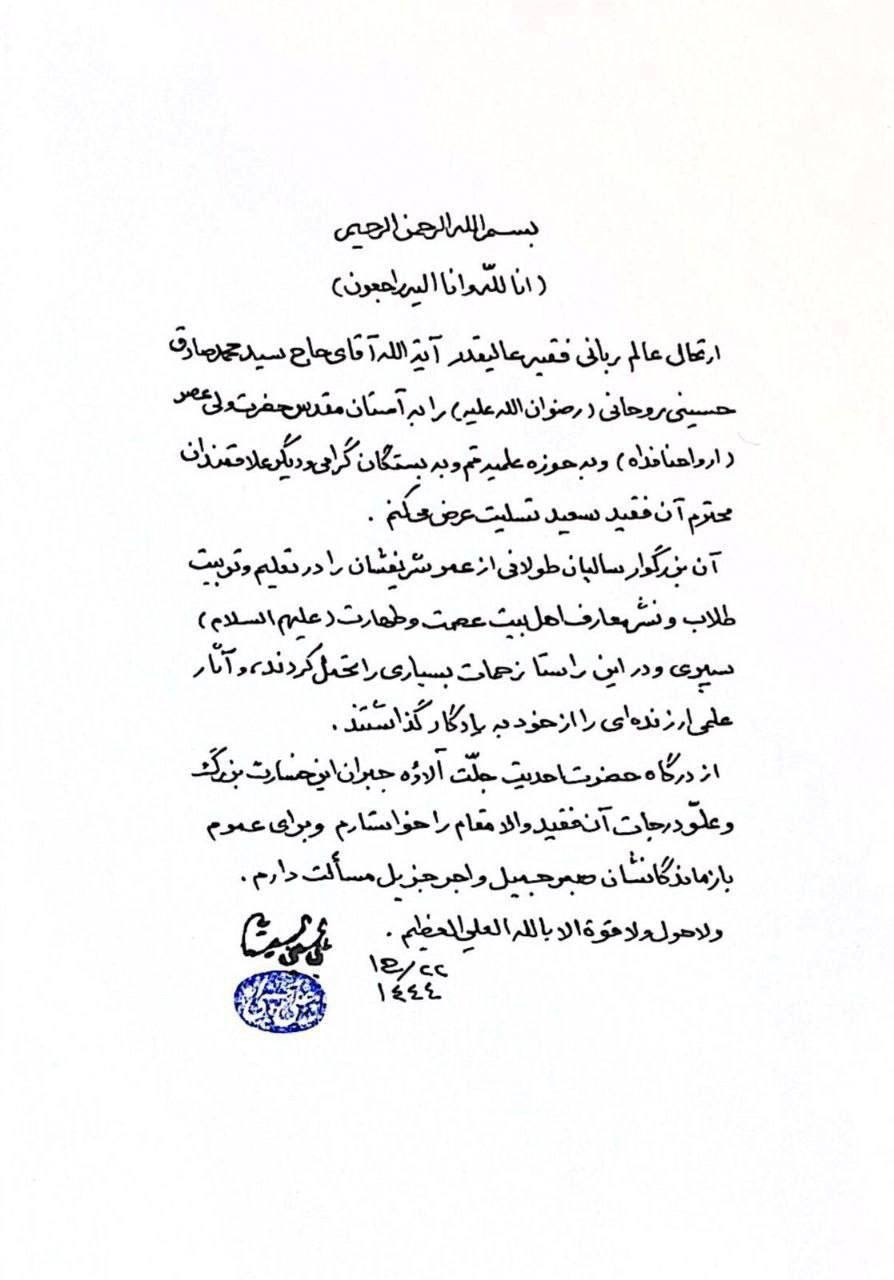 بسم الله الرحمن الرحیم
(انا لله وانا الیه راجعون)
ارتحال عالم ربانی فقیه عالیقدر آیة الله آقای حاج سید محمد صادق
حسینی روحانی (رضوان الله علیه) را به آستان مقدس حضرت ولی عصر
(ارواحنا فداه) و به حوزه علمیه قم و به بستگان گرامی و دیگر علاقمندان
محترم آن فقید سعید تسلیت عرض میکنم .
آن بزرگوار سالیان طولانی از عمر شریفشان را در تعلیم و تربیت
طلاب و نشر معارف اهل بیت عصمت و طهارت (علیهم السلام)
سپری و در این راستا زحمات بسیاری را تحمل کردند، و آثار
علمی ارزنده‌ای را از خود به یادگار گذاشتند .
از درگاه حضرت احدیت جلّت آلاؤه جبران این خسارت بزرگ
و علوّ درجات آن فقید والا مقام را خواستارم و برای عموم
بازماندگانشان صبر جمیل و اجر جزیل مسألت دارم .
ولا حول ولا قوة الا بالله العلي العظيم .
٢٢/ع١
١٤٤٤
علی الحسینی السیستانی